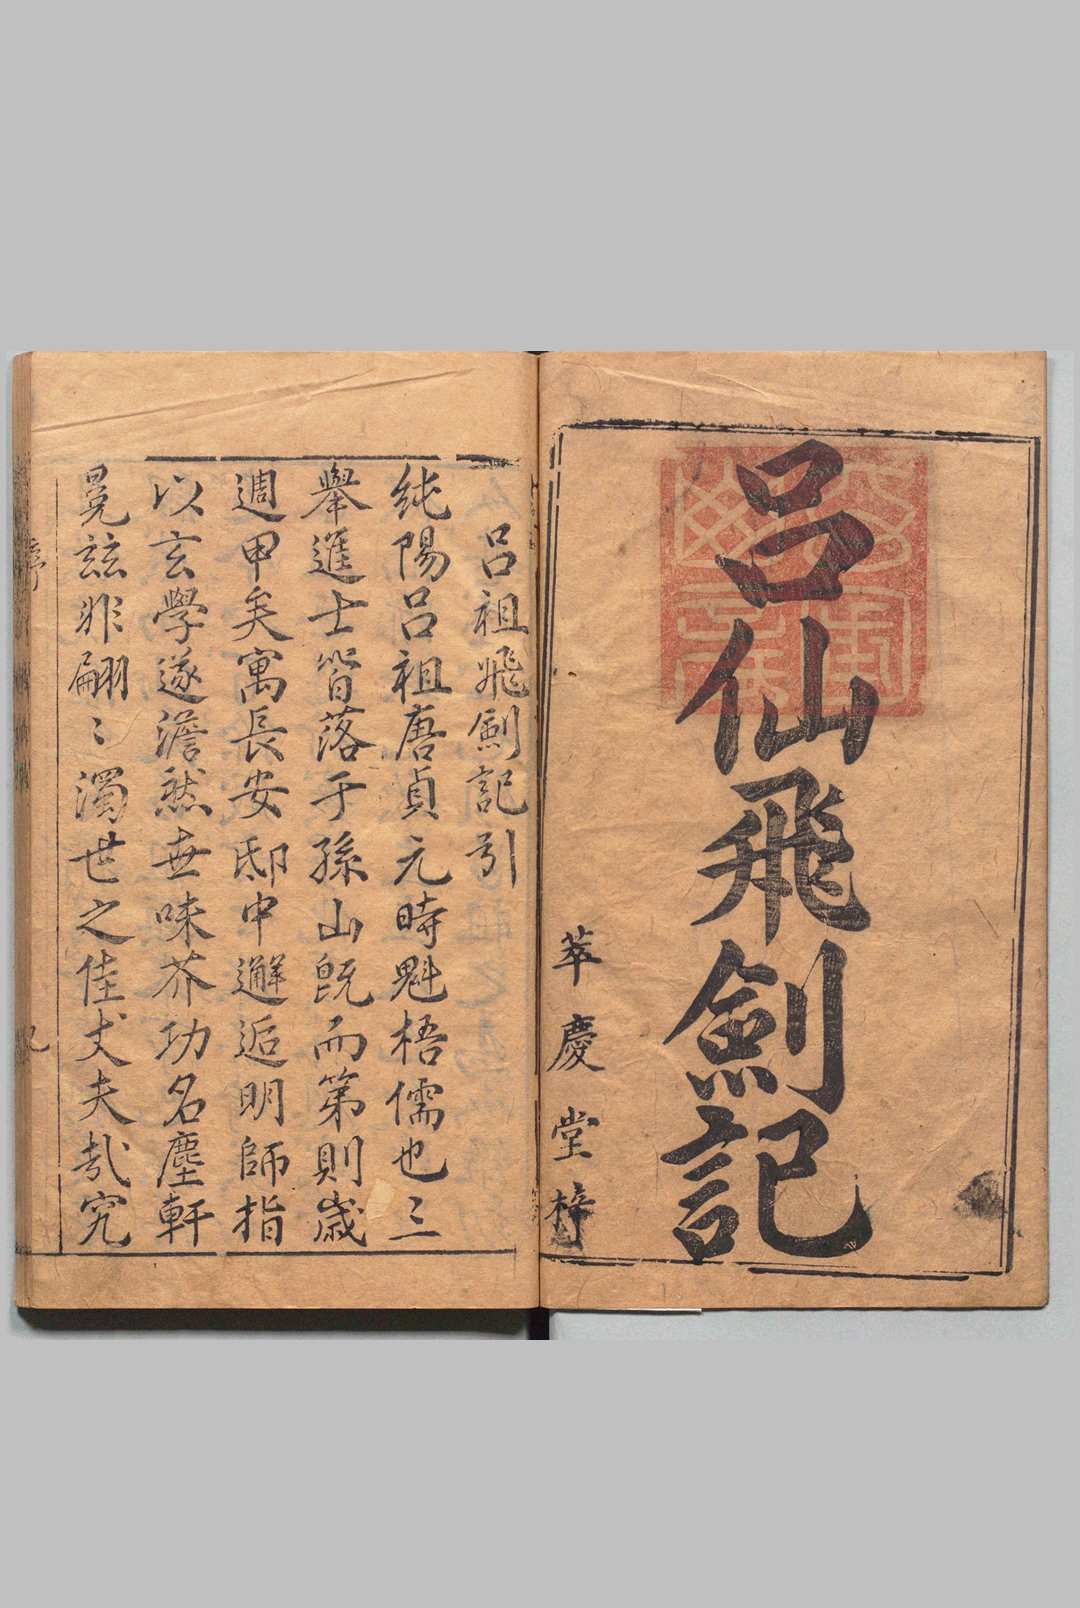 呂仙飛劍記
萃慶堂梓
呂祖飛劍記引
純陽呂祖唐貞元時魁梧儒也三
舉進士皆落于孫山既而第則歲
週甲矣寓長安邸中邂逅明師指
以玄學遂澹然世味芥功名塵軒
冕玆非翩〻濁世之佳丈夫哉究
序